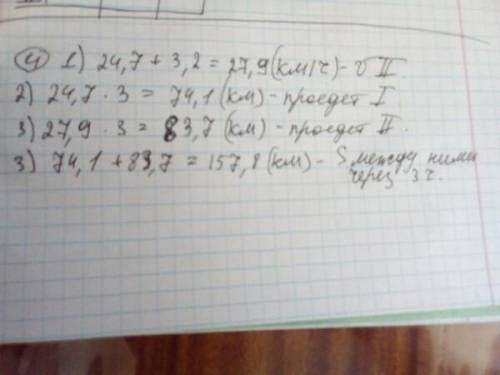 ④ 1) 24,7 + 3,2 = 27,9 (км/ч) - v II
2) 24,7 · 3 = 74,1 (км) - проедет I
3) 27,9 · 3 = 83,7 (км) - проедет II.
3) 74,1 + 83,7 = 157,8 (км) - S между ними
через 3 ч.